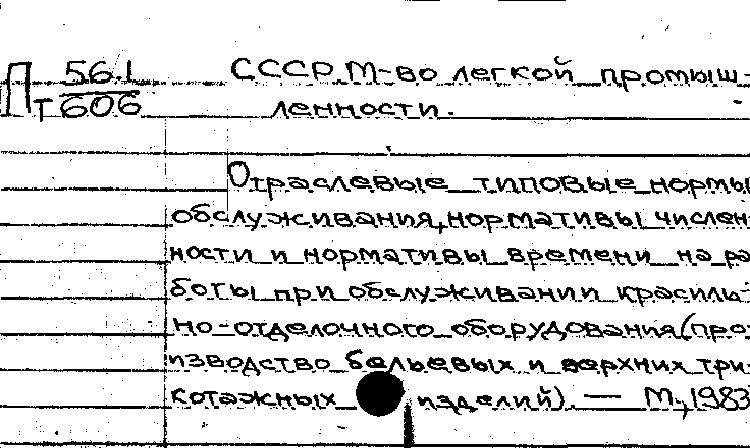 П 56.1 СССР. М-во легкой промыш-
Т606 ленности.
Отраслевые типовые нормы
обслуживания, нормативы числен-
ности и нормативы времени на ра-
боты при обслуживании красиль-
но-отделочного оборудования (про-
изводство бельевых и верхних три-
котажных изделий). — М., 1983